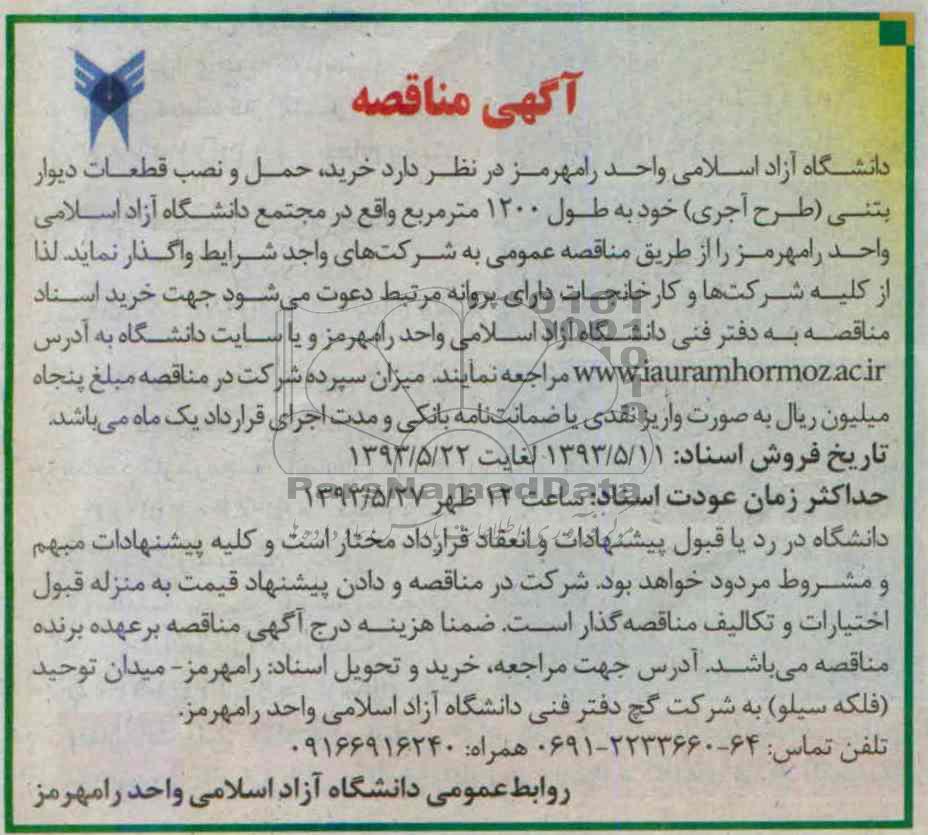 آگهی مناقصه
دانشگاه آزاد اسلامی واحد رامهرمز در نظر دارد خرید، حمل و نصب قطعات دیوار
بتنی (طرح آجری) خود به طول ۱۲۰۰ مترمربع واقع در مجتمع دانشگاه آزاد اسلامی
واحد رامهرمز را از طریق مناقصه عمومی به شرکت‌های واجد شرایط واگذار نماید. لذا
از کلیه شرکت‌ها و کارخانجات دارای پروانه مرتبط دعوت می‌شود جهت خرید اسناد
مناقصه به دفتر فنی دانشگاه آزاد اسلامی واحد رامهرمز و یا سایت دانشگاه به آدرس
www.iauramhormoz.ac.ir مراجعه نمایند. میزان سپرده شرکت در مناقصه مبلغ پنجاه
میلیون ریال به صورت واریز نقدی یا ضمانت‌نامه بانکی و مدت اجرای قرارداد یک ماه می‌باشد.
تاریخ فروش اسناد: ۱۳۹۳/۵/۱۱ لغایت ۱۳۹۳/۵/۲۲
حداکثر زمان عودت اسناد: ساعت ۱۲ ظهر ۱۳۹۳/۵/۲۷
ParsNamadData
دانشگاه در رد یا قبول پیشنهادات و انعقاد قرارداد مختار است و کلیه پیشنهادات مبهم
و مشروط مردود خواهد بود. شرکت در مناقصه و دادن پیشنهاد قیمت به منزله قبول
اختیارات و تکالیف مناقصه‌گذار است. ضمنا هزینه درج آگهی مناقصه برعهده برنده
مناقصه می‌باشد. آدرس جهت مراجعه، خرید و تحویل اسناد: رامهرمز- میدان توحید
(فلکه سیلو) به شرکت گچ دفتر فنی دانشگاه آزاد اسلامی واحد رامهرمز.
تلفن تماس: ۶۴-۲۲۳۳۶۶۰-۰۶۹۱ همراه: ۰۹۱۶۶۹۱۶۲۴۰
روابط عمومی دانشگاه آزاد اسلامی واحد رامهرمز